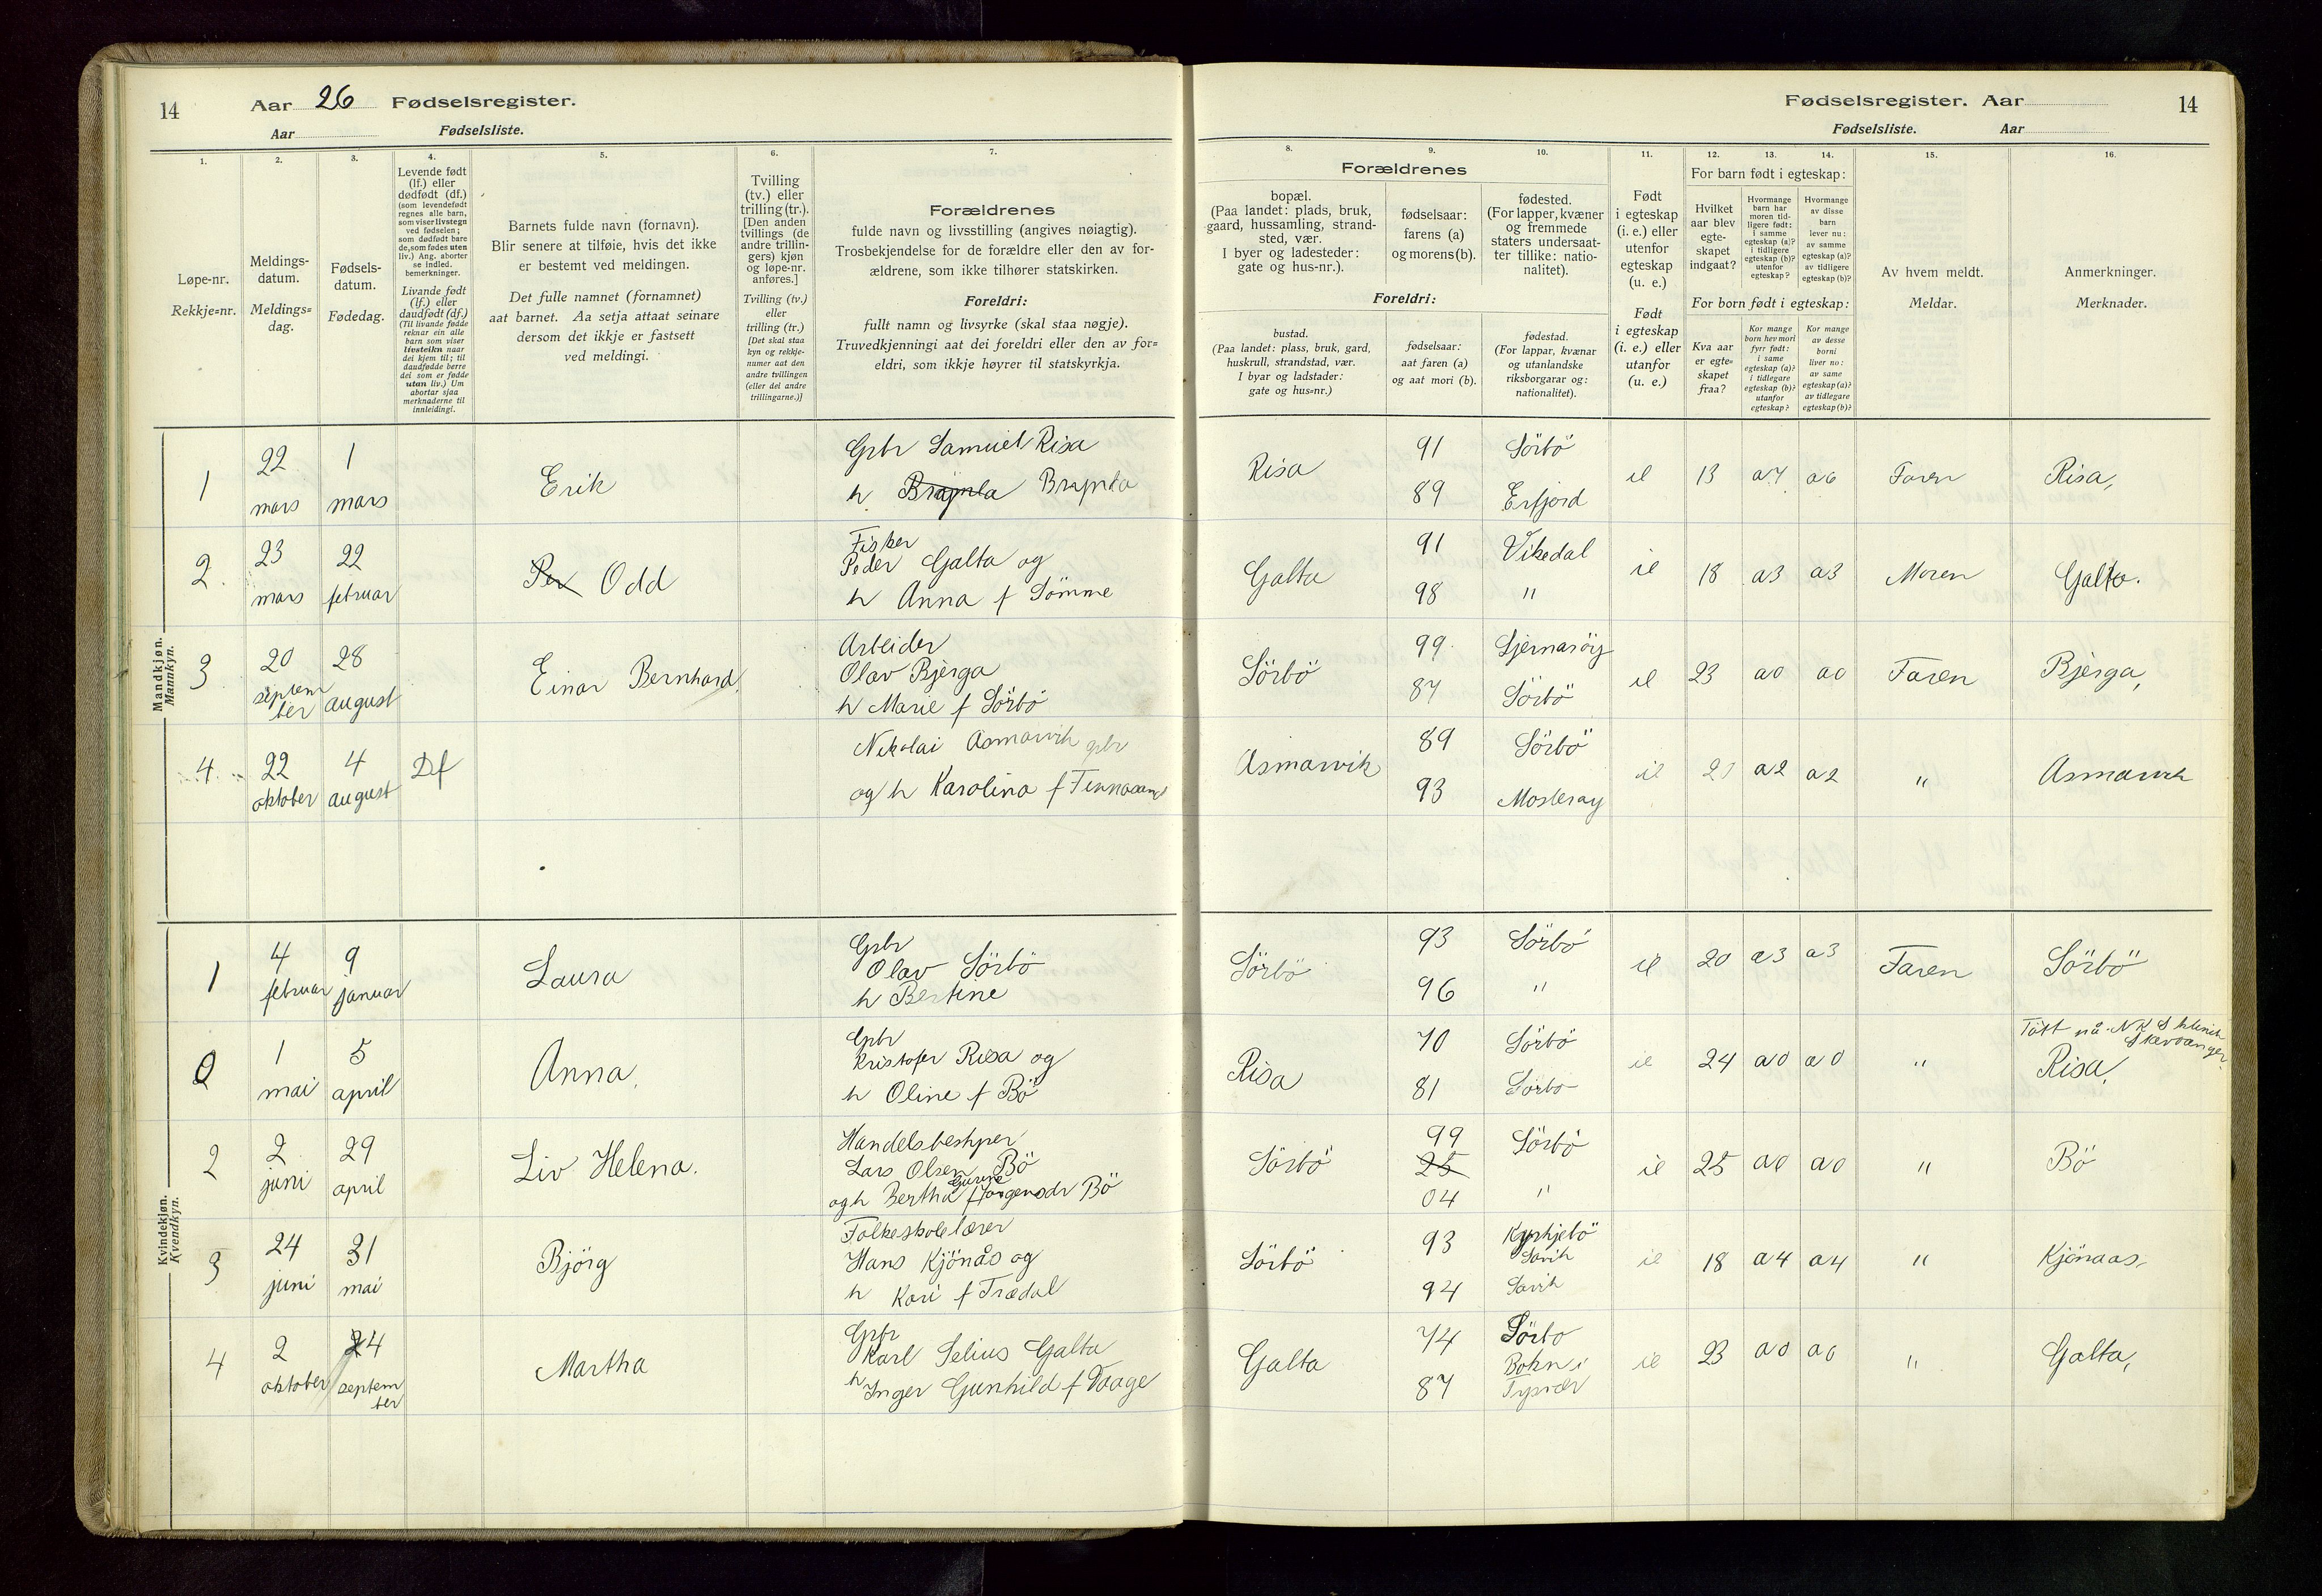 14
Aar 26 Fødselsregister.
Aar Fødselsliste.
Fødselsregister. Aar
14
Fødselsliste. Aar
1.
Løpe-nr.
Rekkje=nr.
2.
Meldings-
datum.
Meldings=
dag.
3.
Fødsels-
datum.
Fødedag.
4.
Levende født
(lf.) eller
dødfødt (df.)
(som levendefødt
regnes alle barn,
som viser livstegn
ved fødselen;
som dødfødt bare
de, som fødes uten
liv.) Ang. aborter
se indled.
bemerkninger.
Livande født
(lf.) eller
daudfødt (df.)
(Til livande fødde
reknar ein alle
barn som viser
livsteikn naar
dei kjem til; til
daudfødde berre
dei som er fødde
utan liv.) Um
abortar sjaa
merknaderne til
innleidingi.
5.
Barnets fulde navn (fornavn).
Blir senere at tilføie, hvis det ikke
er bestemt ved meldingen.
Det fulle namnet (fornamnet)
aat barnet. Aa setja attaat seinare
dersom det ikkje er fastsett
ved meldingi.
6.
Tvilling
(tv.) eller
trilling (tr.).
[Den anden
tvillings (de
andre trillin-
gers) kjøn
og løpe-nr.
anføres.]
Tvilling (tv.)
eller
trilling (tr.)
[Det skal staa
kyn og rekkje-
numer aat den
andre tvillingen
(eller dei andre
trillingarne.)]
7.
Forældrenes
fulde navn og livsstilling (angives nøiagtig).
Trosbekjendelse for de forældre eller den av for-
ældrene, som ikke tilhører statskirken.
Foreldri:
fullt namn og livsyrke (skal staa nøgje).
Truvedkjenningi aat dei foreldri eller den av for=
eldri, som ikkje høyrer til statskyrkja.
Forældrenes
8.
bopæl.
(Paa landet: plads, bruk,
gaard, hussamling, strand-
sted, vær.
I byer og ladesteder:
gate og hus-nr.).
9.
fødselsaar:
farens (a)
og morens (b).
10.
fødested.
(For lapper, kvæner
og fremmede
staters undersaat-
ter tillike: natio-
nalitet).
Foreldri:
bustad.
(Paa landet: plass, bruk, gard,
huskrull, strandstad, vær.
I byar og ladstader:
gate og hus=nr.)
fødselsaar:
aat faren (a)
og aat mori (b).
fødestad.
(For lappar, kvænar
og utanlandske
riksborgarar og:
nationalitet).
11.
Født
i egteskap
(i. e.) eller
utenfor
egteskap
(u. e.)
Født
i egteskap
(i. e.) eller
utanfor
(u. e.)
12.
13.
14.
For barn født i egteskap:
Hvilket
aar blev
egte-
skapet
indgaat?
Hvormange
barn har
moren tid-
ligere født:
i samme
egteskap (a)?
i tidligere
egteskap (b)?
utenfor
egteskap?
Hvormange
av disse
barn
lever nu:
av samme
egteskap (a)?
av tidligere
egteskap (b)?
For born født i egteskap:
Kva aar
er egte=
skapet
fraa?
Kor mange
born hev mori
fyrr født:
i same
egteskap (a)?
i tidlegare
egteskap (b)?
utanfor
egteskap?
Kor mange
av desse
borni
liver no:
av same
egteskap (a)?
av tidlegare
egteskap (b)?
15.
Av hvem meldt.
Meldar.
16.
Anmerkninger.
Merknader.
Mandkjøn.
Mannkyn.
1 22 mars 1 mars Erik
Grbr Samuel Risa
h Brynla Brynla
Risa 91 Sörbö 89 Erfjord ie 13 a7 a6 Faren Risa,
2. 23 mars 22 februar Per Odd
Fisker
Peder Galta og
h Anna f Sömme
Galta 91 Vikedal 98 " ie 18 a3 a3 Moren Galta.
3 20 september 28 august Einar Bernhard.
Arbeider
Olav Bjerga
h Marie f Sörbö
Sörbö 99 Sjernaröy 87 Sörbö ie 23 a0 a0 Faren Bjerga,
4 22 oktober 4 august Df
Nikolai Asmarvik gbr
og h Karolina f Finnasand
Asmarvik 89 Sörbö 93 Mosteröy ie 21 a2 a2 " Asmarvik
Kvindekjøn.
Kvendkyn.
1 4 februar 9 januar Laura
Grbr
Olav Sörbö
h Bertine
Sörbö 93 Sörbö 96 " ie 20 a3 a3 Faren Sörbö
2 1 mai 5 april Anna.
Gpbr
Kristofer Risa og
h Oline f Bö
Risa 70 Sörbö 81 Sörbö ie 24 a0 a0 "
Tött på N K S klinik
Stavanger.
Risa,
2 2 juni 29 april Liv Helena.
Handelsbestyrer
Lars Olsen Bö
og h Bertha Gurine f Jörgensdr Bö
Sörbö 99 Sörbö 25 04 " ie 25 a0 a0 " Bö
3 24 juni 31 mai Björg
Folkeskolelærer
Hans Kjönås og
h Kari f Trædal
Sörbö 93 Kyrkjebö Lavik 94 Lavik ie 18 a4 a4 " Kjönaas,
4 2 oktober 24 september Martha
Grbr
Karl Selius Galta
h Inger Gunhild f Vaage
Galta 74 Sörbö 87 Bokn i Tysvær ie 23 a0 a0 " Galta,